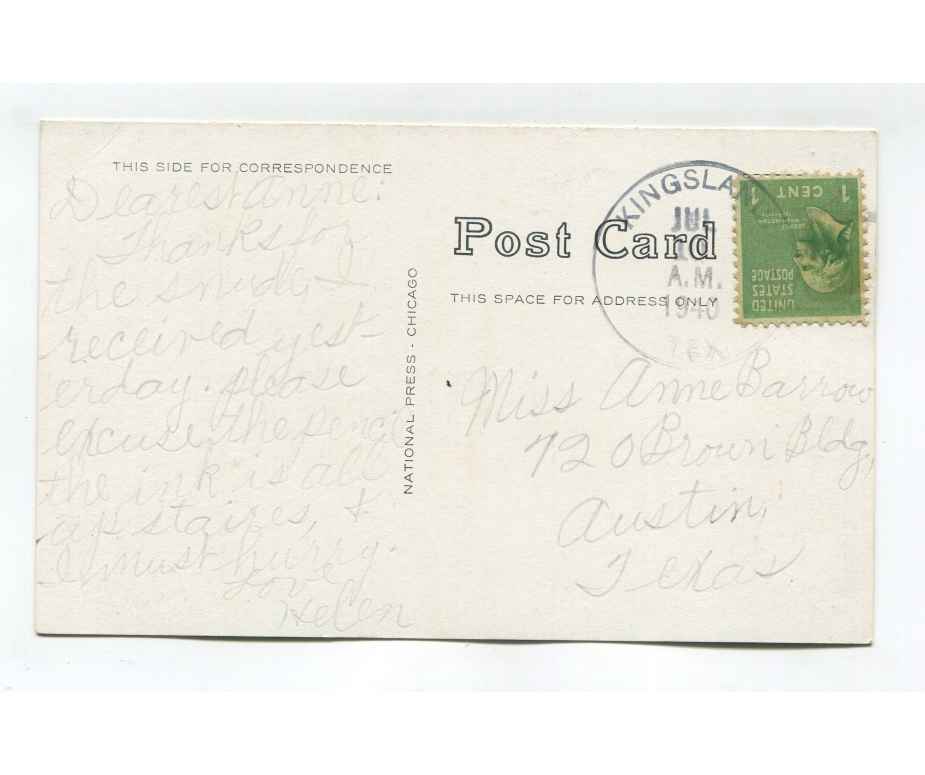 THIS SIDE FOR CORRESPONDENCE
Dearest Anne:
Thanks for
the I
received yest-
erday. please
excuse the penc
the ink is all
up staires, &
I must hurry.
Love
Helen
NATIONAL PRESS - CHICAGO
Post Card
THIS SPACE FOR ADDRESS ONLY
KINGSLA
JUL
A.M.
1940
TEX
1 CENT 1
UNITED
STATES
POSTAGE
Miss Anne Barrow
720 Brown Bldg,
Austin,
Texas